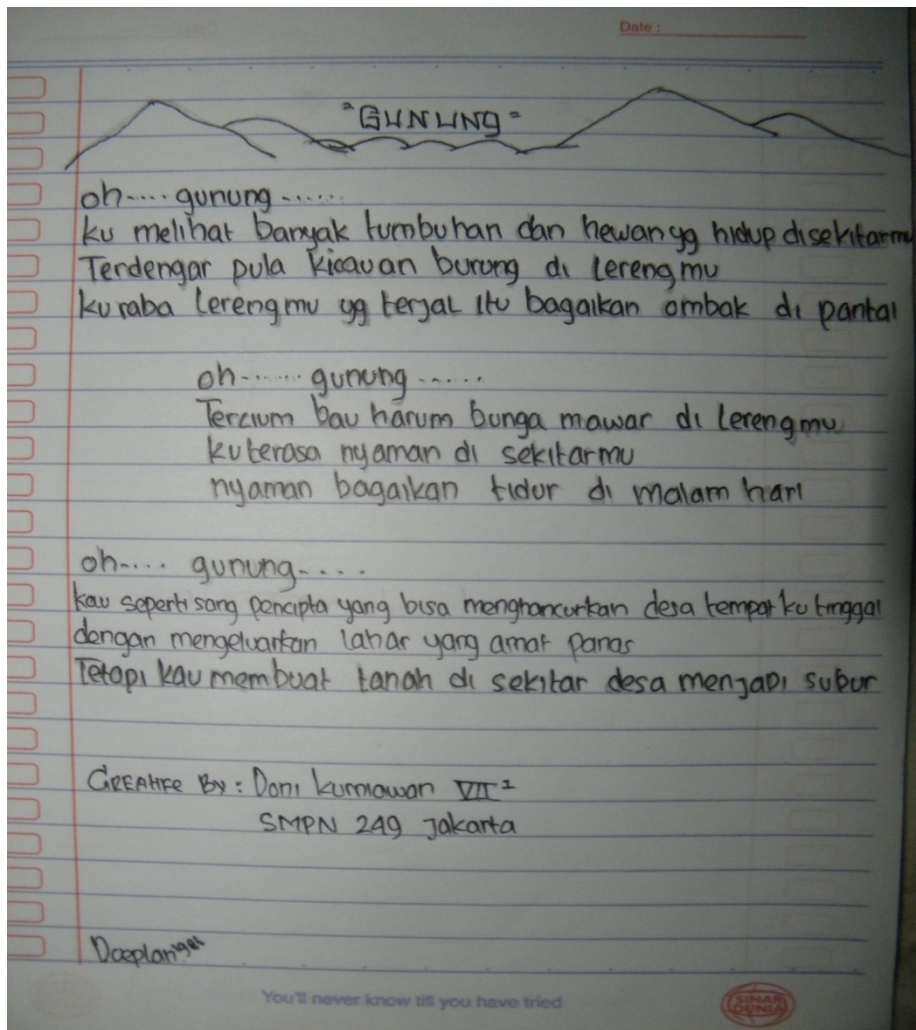 Date :
"GUNUNG"
oh..... gunung ......
ku melihat banyak tumbuhan dan hewan yg hidup disekitarmu
Terdengar pula kicauan burung di lerengmu
ku raba lerengmu yg terjal itu bagaikan ombak di pantai
oh....... gunung ......
Tercium bau harum bunga mawar di lerengmu
ku terasa nyaman di sekitarmu
nyaman bagaikan tidur di malam hari
oh..... gunung.....
kau seperti sang pencipta yang bisa menghancurkan desa tempat ku tinggal
dengan mengeluarkan lahar yang amat panas
Tetapi kau membuat tanah di sekitar desa menjadi subur
By : Doni kurniawan VII²
SMPN 249 Jakarta
You'll never know till you have tried
SINAR
DUNIA